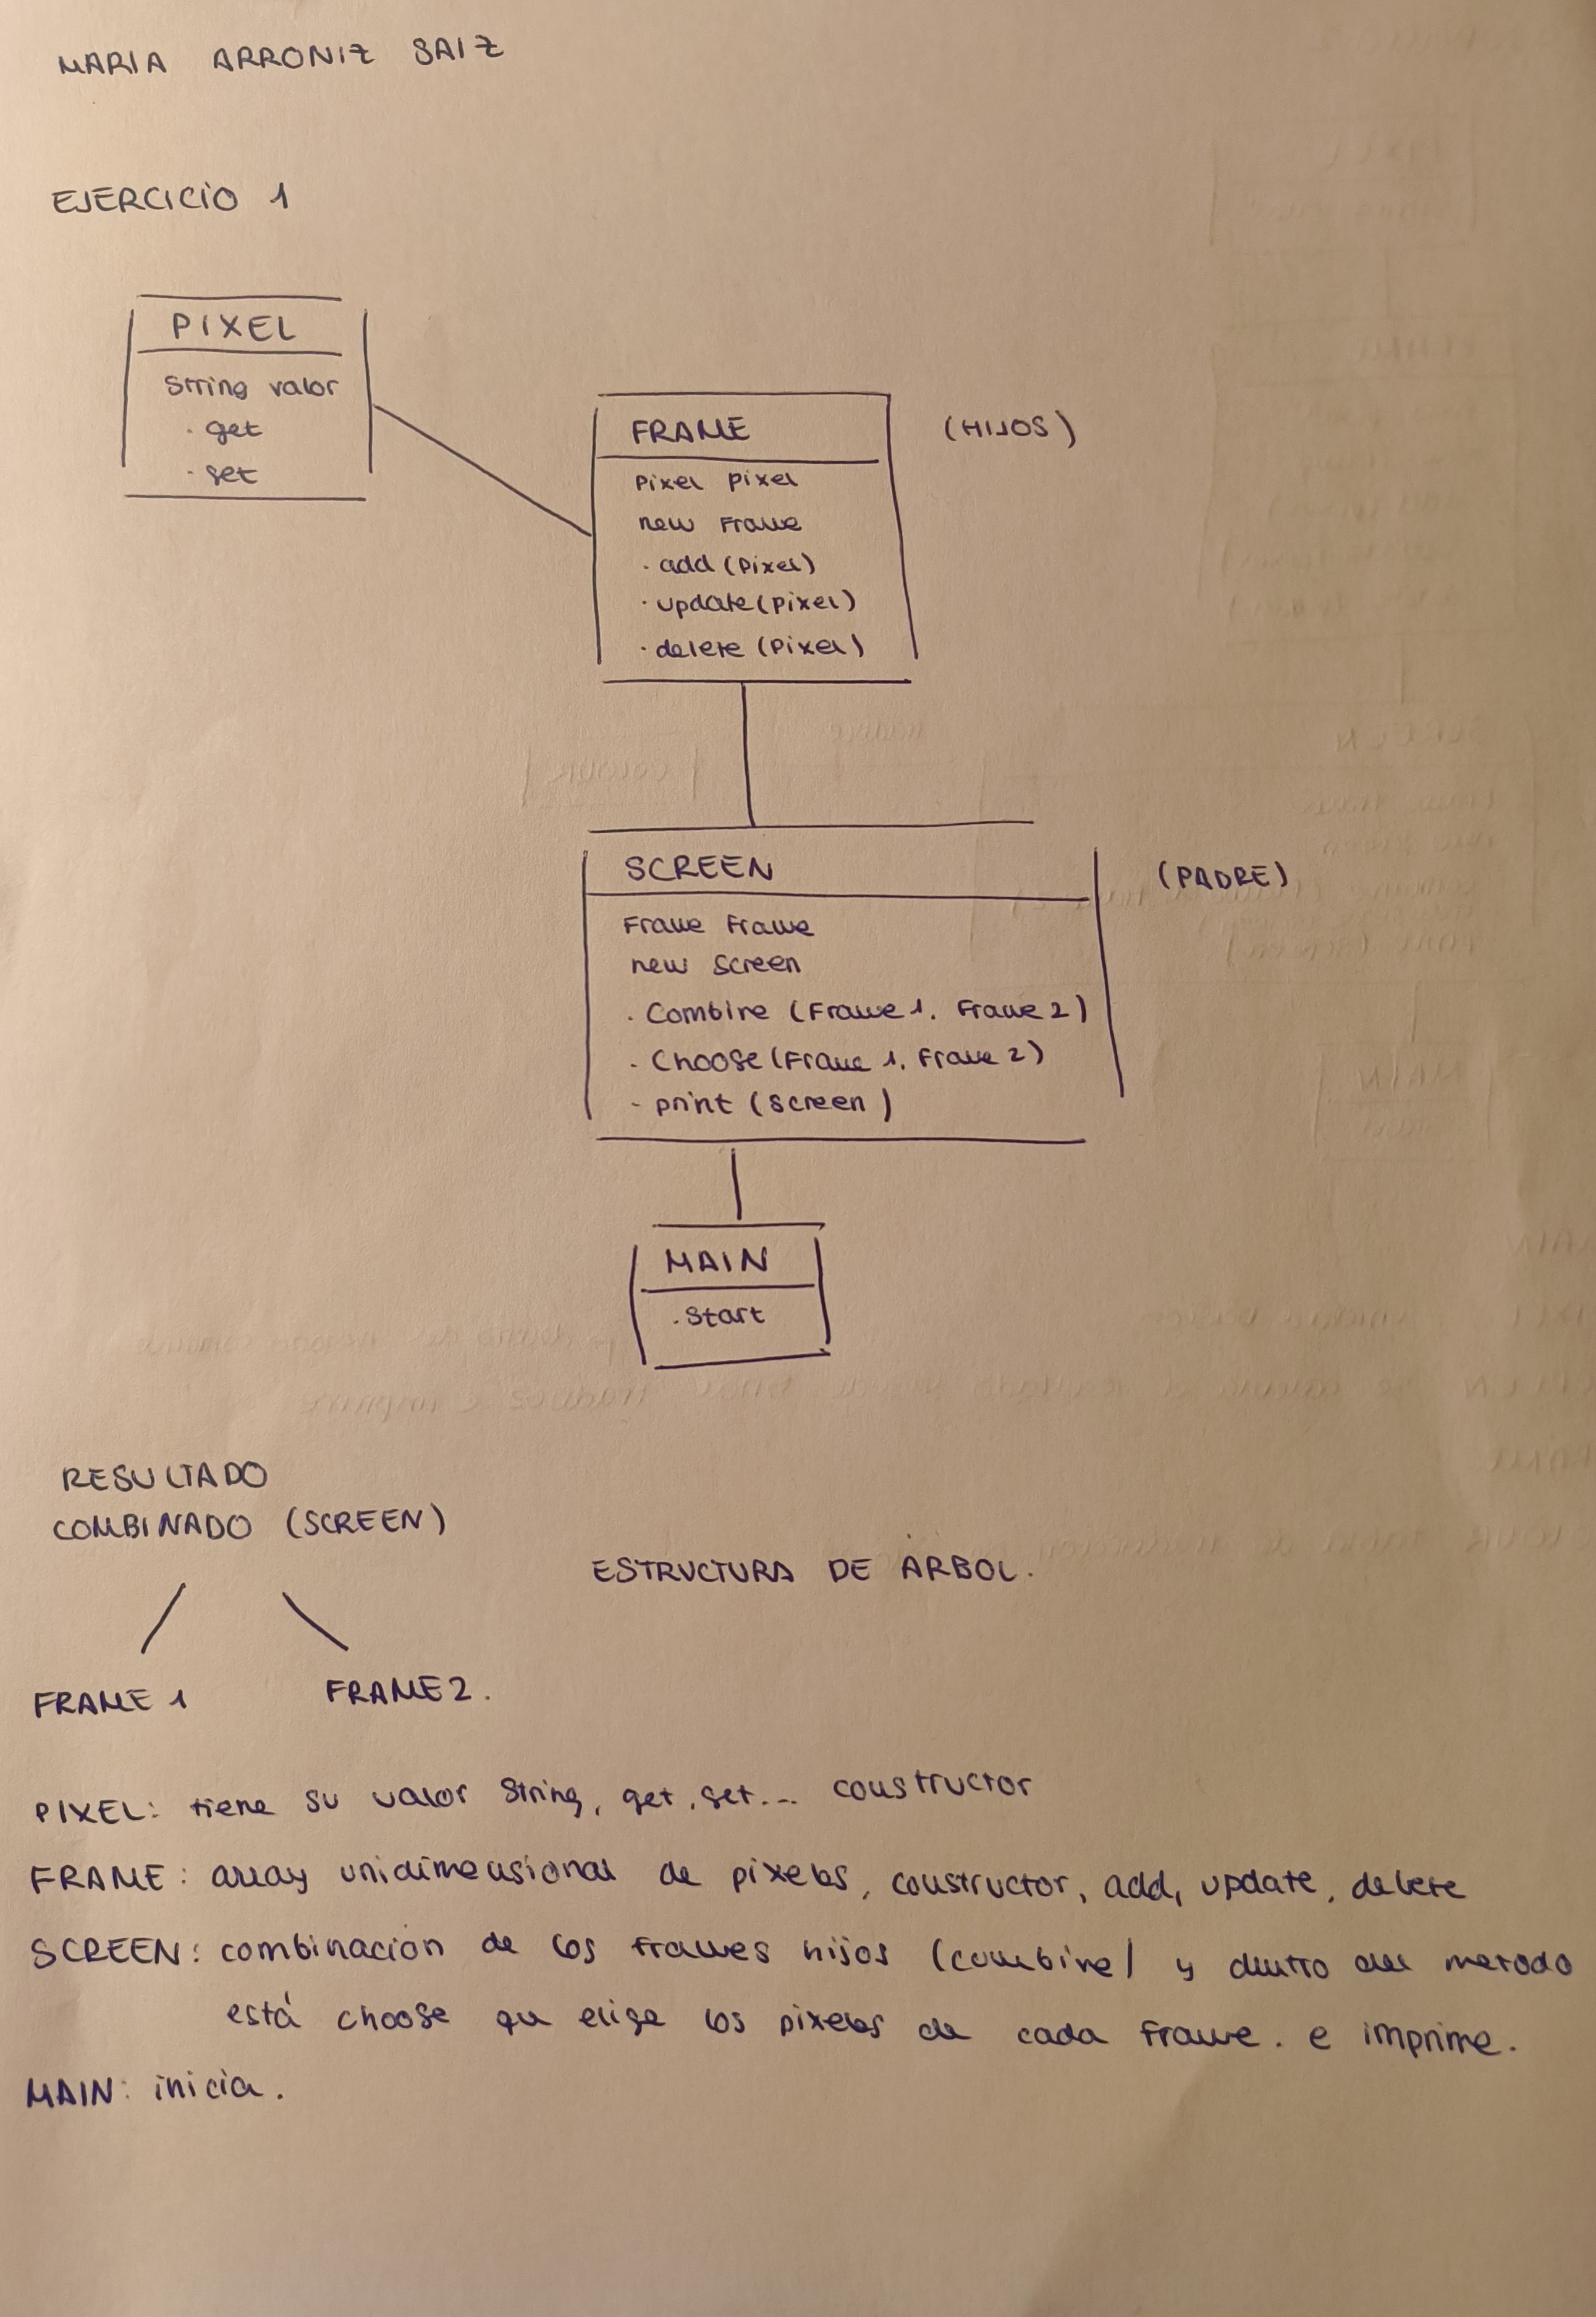 MARIA ARRONIZ SAIZ
EJERCICIO 1
PIXEL
String valor
· get
· set
FRAME
(HIJOS)
Pixel pixel
new Frame
· add (pixel)
· update (pixel)
· delete (pixel)
SCREEN
(PADRE)
Frame Frame
new Screen
· Combine (Frame 1, Frame 2)
· Choose (Frame 1, Frame 2)
- print (screen)
MAIN
. Start
RESULTADO
COMBINADO (SCREEN)
ESTRUCTURA DE ARBOL.
FRAME 1
FRAME 2.
PIXEL: tiene su valor String, get, set... constructor
FRAME: array unidimensional de pixeles, constructor, add, update, delete
SCREEN: combinacion de los frames hijos (combine) y dentro del metodo
está choose que elige los pixeles de cada frame. e imprime.
MAIN: inicia.